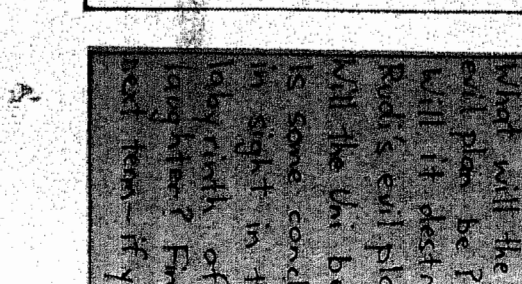 What will the
evil plan be?
Will it dest
Rudi's evil pl
Will the Uni be
Is some conc
in sight in t
labyrinth of
laughter? Fin
next term—if y